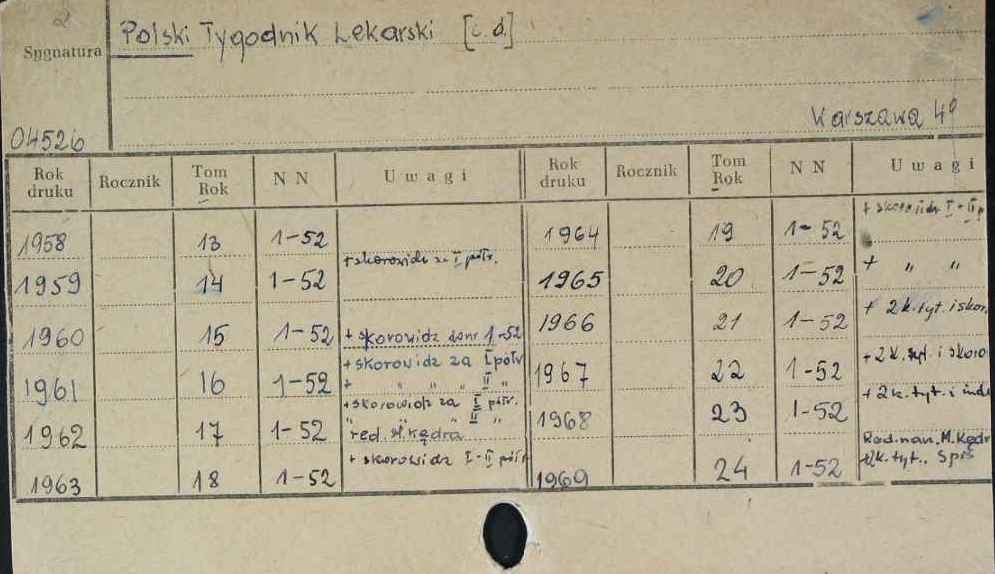 2
Sygnatura
Polski Tygodnik Lekarski [c. d.]
Warszawa 4°
04526
Rok druku Rocznik Tom Rok N N Uwagi Rok druku Rocznik Tom Rok N N Uwagi
1958 13 1-52 1964 19 1-52 + skorowidz I-II p
1959 14 1-52 + skorowidz za I półr. 1965 20 1-52 + " "
1960 15 1-52 + skorowidz do nr 1-52 1966 21 1-52 + 2 k. tyt. i skor.
1961 16 1-52 + skorowidz za I półr
+ " " " II "
1967 22 1-52 + 2 k. tyt. i skoro
1962 17 1-52 + skorowidz za I półr.
" " " II "
red. M. Kędra
1968 23 1-52 + 2 k. tyt. i inde
1963 18 1-52 + skorowidz I-II półr 1969 24 1-52 Red. nan. M. Kędr
+ 2 k. tyt., Spis